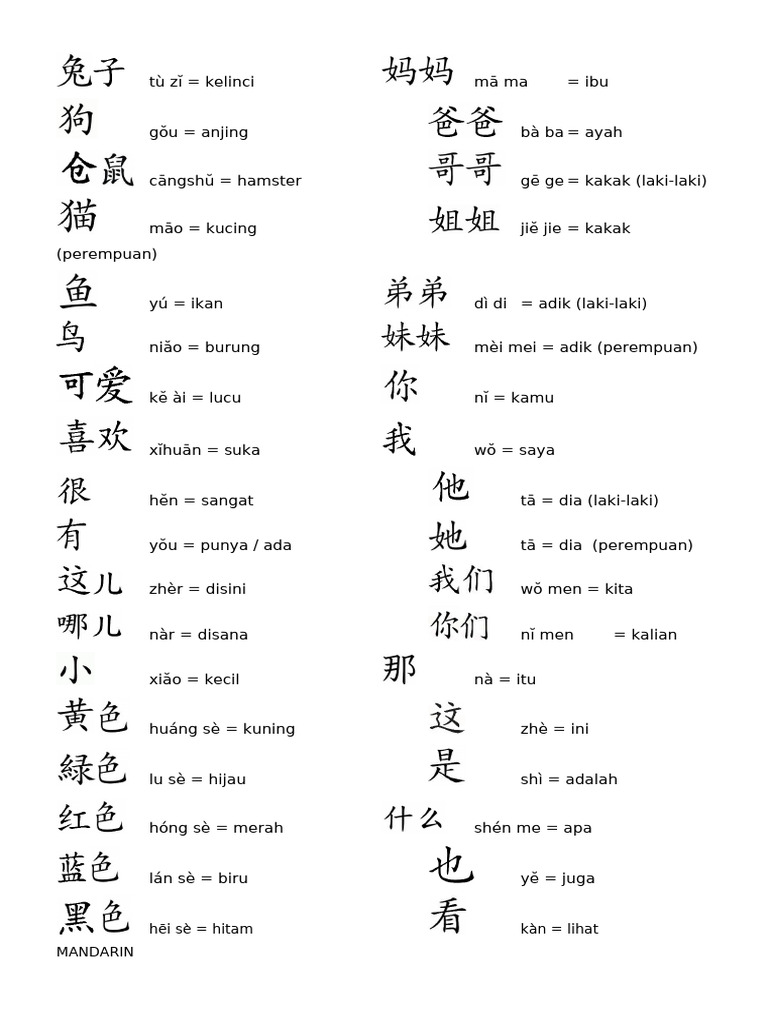 兔子 tù zĭ = kelinci 妈妈 mā ma = ibu
狗 gŏu = anjing 爸爸 bà ba = ayah
仓鼠 cāngshŭ = hamster 哥哥 gē ge = kakak (laki-laki)
猫 māo = kucing 姐姐 jiĕ jie = kakak
(perempuan)
鱼 yú = ikan 弟弟 dì di = adik (laki-laki)
鸟 niăo = burung 妹妹 mèi mei = adik (perempuan)
可爱 kĕ ài = lucu 你 nĭ = kamu
喜欢 xĭhuān = suka 我 wŏ = saya
很 hĕn = sangat 他 tā = dia (laki-laki)
有 yŏu = punya / ada 她 tā = dia (perempuan)
这儿 zhèr = disini 我们 wŏ men = kita
哪儿 nàr = disana 你们 nĭ men = kalian
小 xiăo = kecil 那 nà = itu
黄色 huáng sè = kuning 这 zhè = ini
緑色 lu sè = hijau 是 shì = adalah
红色 hóng sè = merah 什么 shén me = apa
蓝色 lán sè = biru 也 yĕ = juga
黑色 hēi sè = hitam 看 kàn = lihat
MANDARIN